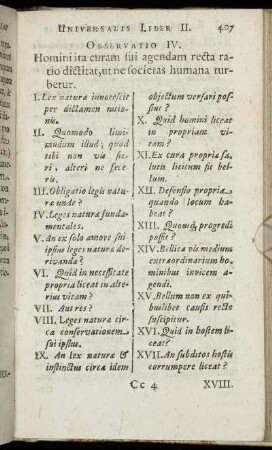 UNIVERSALIS LIBER II. 407
OBSERVATIO IV.
Homini ita curam sui agendam recta ra-
tio dictitat, ut ne societas humana tur-
betur.
I. Lex naturæ innotescit
per dictamen ratio-
nis.
II. Quomodo limi-
tandum illud; quod
tibi non vis fie-
ri, alteri ne fece-
ris.
III. Obligatio legis natu-
ræ unde?
IV. Leges naturæ funda-
mentales.
V. An ex solo amore sui
ipsius leges naturæ de-
rivandæ?
VI. Quid in necessitate
propria liceat in alte-
rius vitam?
VII. Aut res?
VIII. Leges naturæ cir-
ca conservationem
sui ipsius.
IX. An lex naturæ &
instinctus circa idem
objectum versari pos-
sint?
X. Quid homini liceat
in propriam vi-
tam?
XI. Ex cura propriæ sa-
lutis licitum sit bel-
lum.
XII. Defensio propria
quando locum ha-
beat?
XIII. Quousq; progredi
possit?
XIV. Bellica vis medium
extraordinarium ho-
minibus invicem a-
gendi.
XV. Bellum non ex qui-
buslibet causis recte
suscipitur.
XVI. Quid in hostem li-
ceat?
XVII. An subditos hostis
corrumpere liceat?
Cc 4 XVIII.